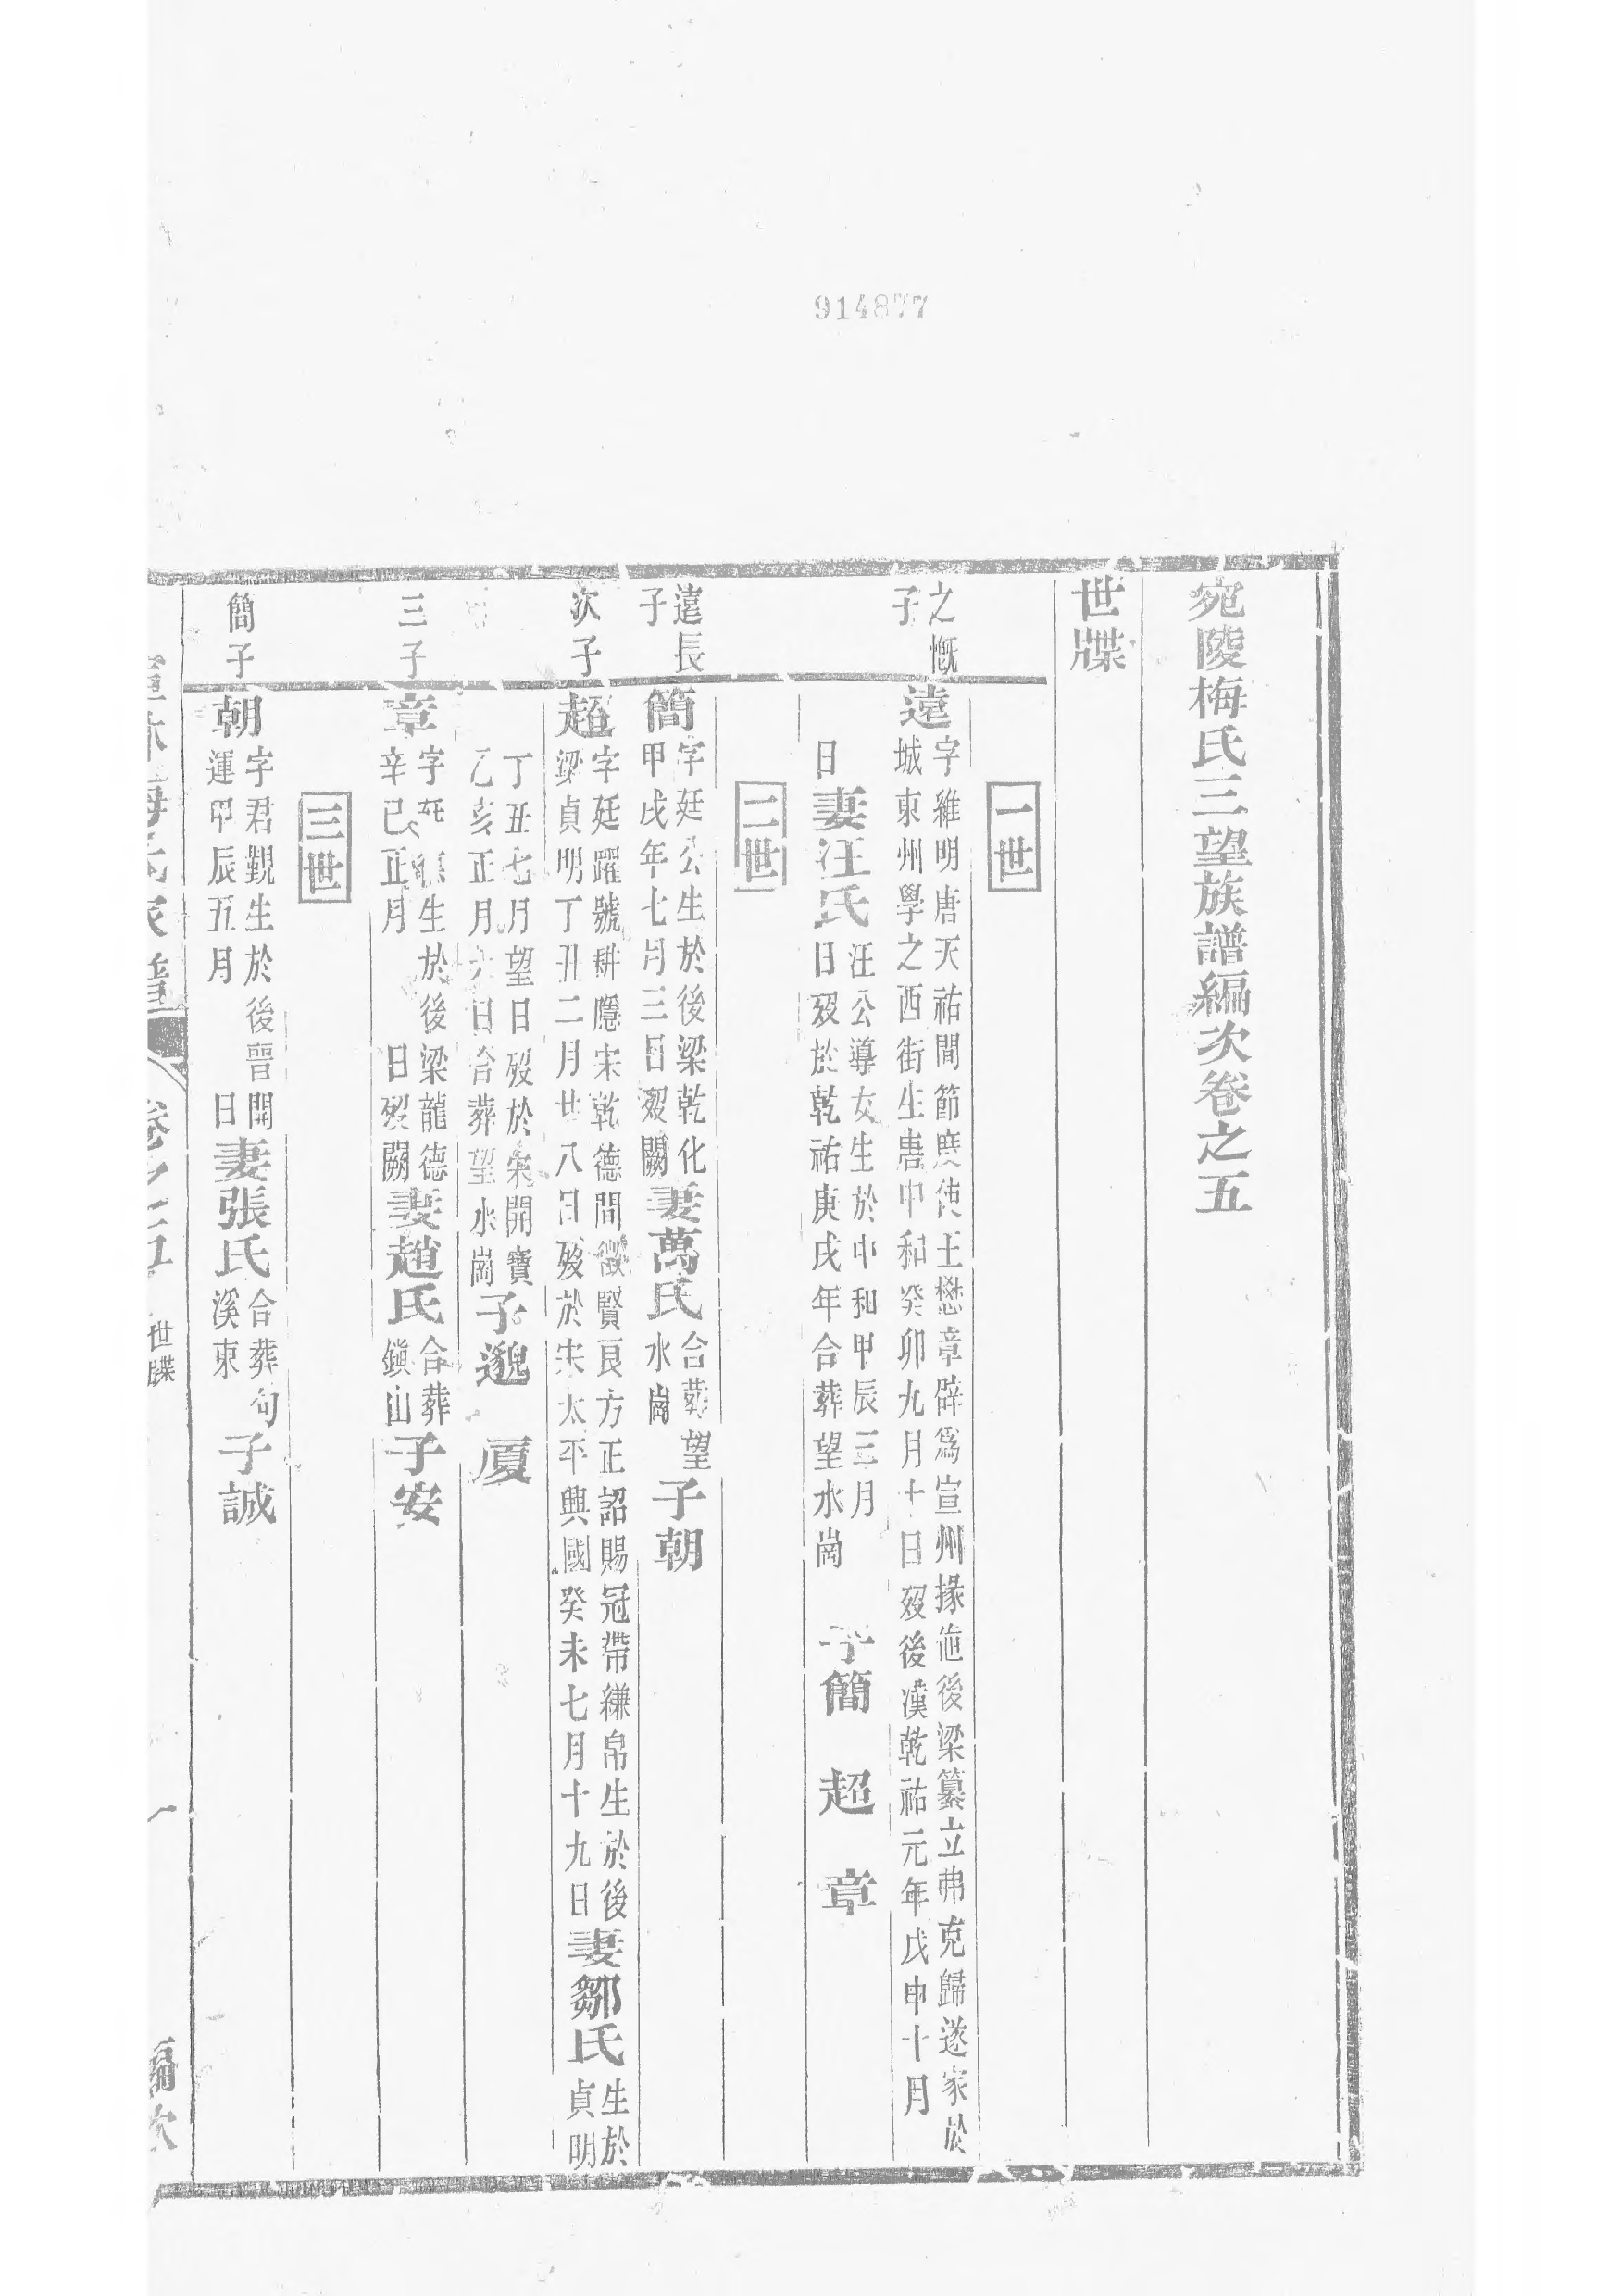 914877
宛陵梅氏三望族譜編次卷之五
世牒
一世
之慨
子
遠
字維明唐天祐間節度使王懋章辟爲宣州掾逈後梁纂立弗克歸遂家於
城東州學之西街生唐中和癸卯九月十日歿後漢乾祐元年戊申十月
日
妻汪氏
汪公導女生於中和甲辰三月
日歿於乾祐庚戌年合葬望水崗
子簡 超 章
二世
遠長
子
簡
字廷公生於後梁乾化
甲戌年七月三日歿闕
妻萬氏
合葬望
水崗
子朝
次子
超
字廷躍號耕隱宋乾德間徵賢良方正詔賜冠帶縑帛生於後
梁貞明丁丑二月廿八日歿於宋太平興國癸未七月十九日
妻鄒氏
生於
貞明
丁丑七月望日歿於宋開寶
乙亥正月六日合葬望水崗
子邈 厦
三子
章
字廷 生於後梁龍德
辛巳正月 日歿闕
妻趙氏
合葬
鎭山
子安
三世
簡子
朝
字君覲生於後晉開
運甲辰五月 日
妻張氏
合葬句
溪東
子誠
梅氏家譜
卷之五
世牒
一
編次